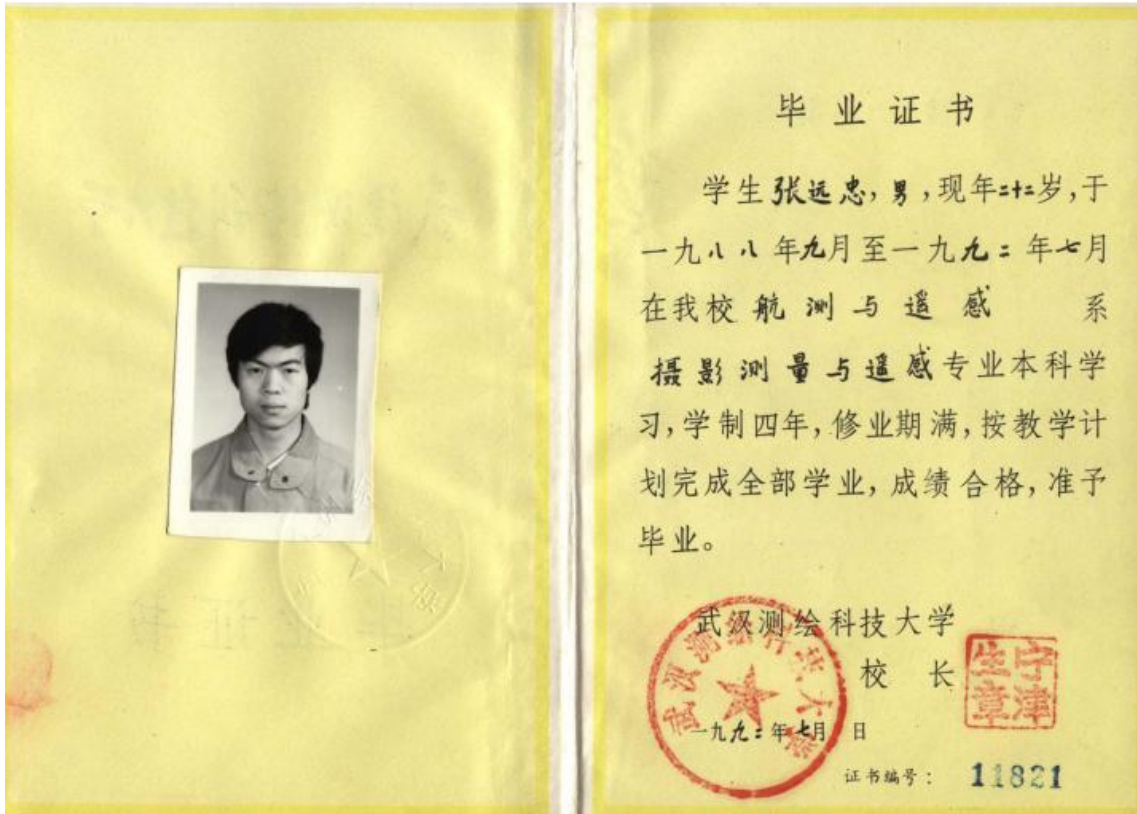 毕业证书
学生张远忠,男,现年二十二岁,于
一九八八年九月至一九九二年七月
在我校航测与遥感 系
摄影测量与遥感专业本科学
习,学制四年,修业期满,按教学计
划完成全部学业,成绩合格,准予
毕业。
武汉测绘科技大学
校 长
宁津
生章
武汉测绘科技大学
一九九二年七月 日
证书编号: 11821